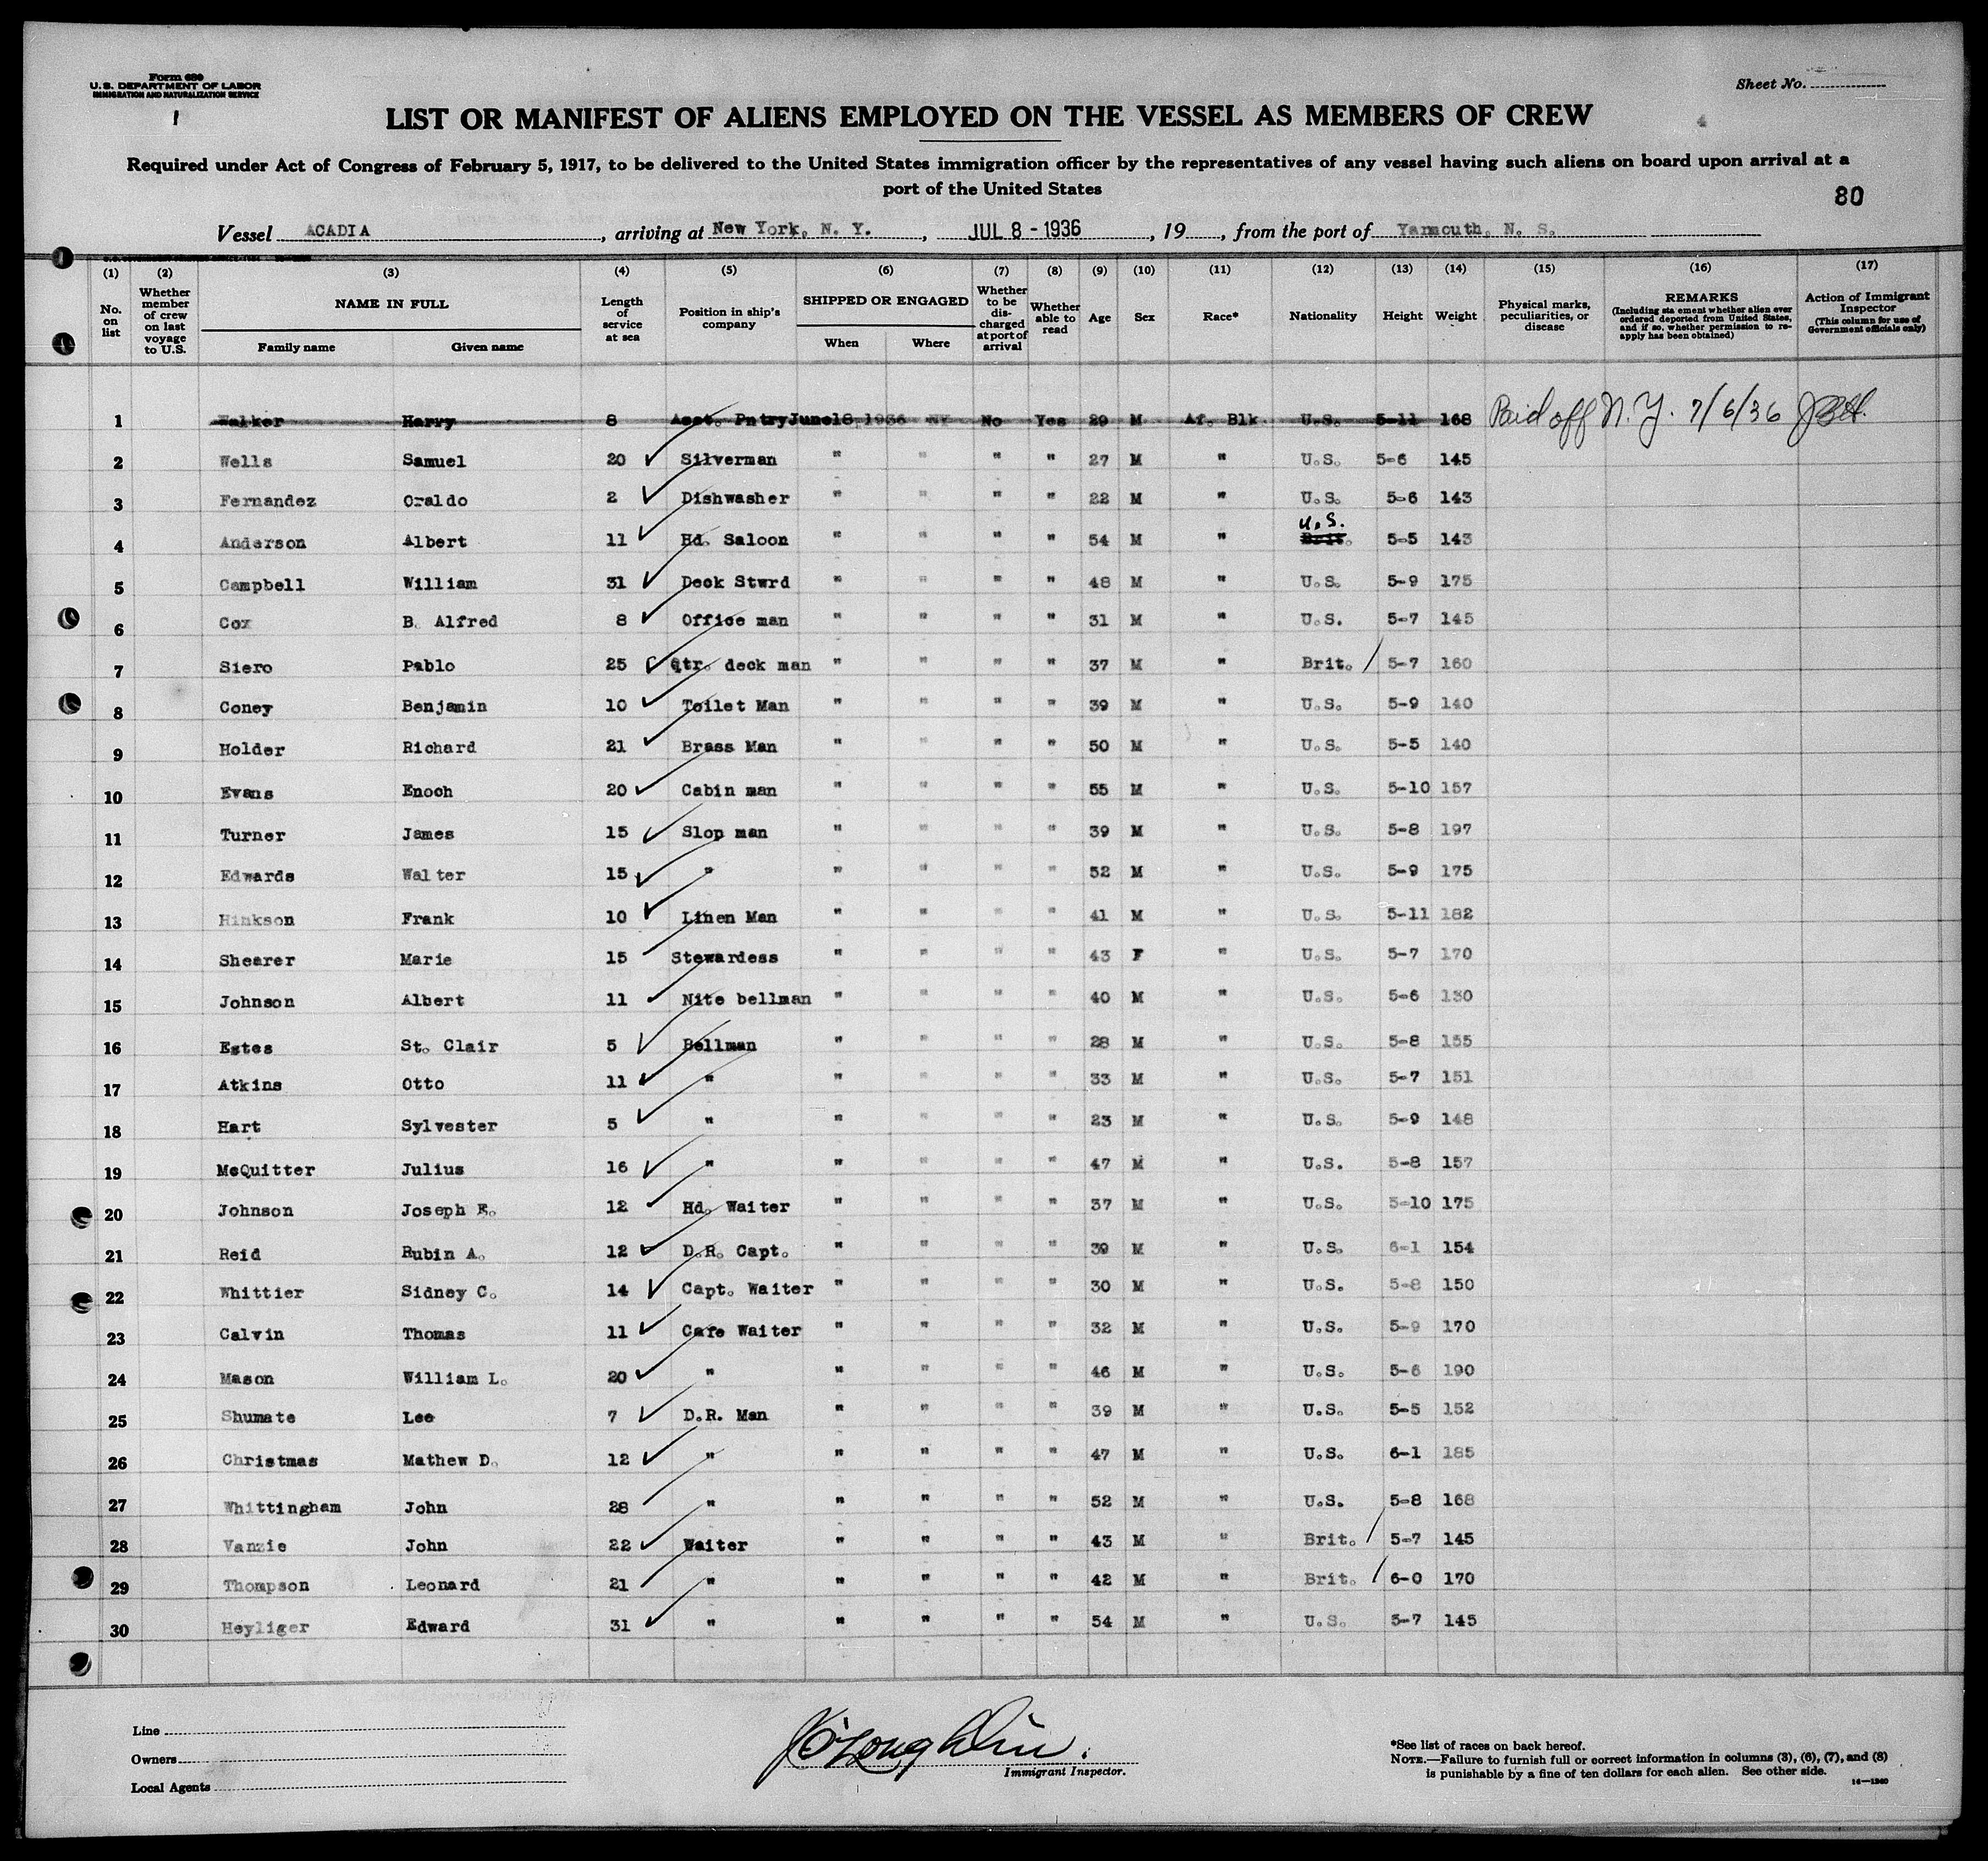 Form 680
U. S. DEPARTMENT OF LABOR
IMMIGRATION AND NATURALIZATION SERVICE
1
Sheet No.
LIST OR MANIFEST OF ALIENS EMPLOYED ON THE VESSEL AS MEMBERS OF CREW
4
Required under Act of Congress of February 5, 1917, to be delivered to the United States immigration officer by the representatives of any vessel having such aliens on board upon arrival at a
port of the United States
80
Vessel ACADIA, arriving at New York, N. Y., JUL 8 - 1936, 19, from the port of Yarmouth, N. S.
(1) (2) (3) (4) (5) (6) (7) (8) (9) (10) (11) (12) (13) (14) (15) (16) (17)
No. on list
Whether member of crew on last voyage to U.S.
NAME IN FULL
Family name Given name
Length of service at sea
Position in ship's company
SHIPPED OR ENGAGED
When Where
Whether to be discharged at port of arrival
Whether able to read
Age
Sex
Race*
Nationality
Height
Weight
Physical marks, peculiarities, or disease
REMARKS
(Including sta ement whether alien ever ordered deported from United States, and if so, whether permission to reapply has been obtained)
Action of Immigrant Inspector
(This column for use of Government officials only)
1 Walker Harry 8 Asst. Pntry June18 1936 NY No Yes 29 M Af. Blk U.S. 5-11 168 Paid off N.Y. 7/6/36 JBH.
2 Wells Samuel 20 Silverman " " " " 27 M " U.S. 5-6 145
3 Fernandez Oraldo 2 Dishwasher " " " " 22 M " U.S. 5-6 143
U.S.
4 Anderson Albert 11 Hd. Saloon " " " " 54 M " Brit. 5-5 143
5 Campbell William 31 Deck Stwrd " " " " 48 M " U.S. 5-9 175
6 Cox B. Alfred 8 Office man " " " " 31 M " U.S. 5-7 145
7 Siero Pablo 25 Qtr. deck man " " " " 37 M " Brit. / 5-7 160
8 Coney Benjamin 10 Toilet Man " " " " 39 M " U.S. 5-9 140
9 Holder Richard 21 Brass Man " " " " 50 M " U.S. 5-5 140
10 Evans Enoch 20 Cabin man " " " " 55 M " U.S. 5-10 157
11 Turner James 15 Slop man " " " " 39 M " U.S. 5-8 197
12 Edwards Walter 15 " " " " " 52 M " U.S. 5-9 175
13 Hinkson Frank 10 Linen Man " " " " 41 M " U.S. 5-11 182
14 Shearer Marie 15 Stewardess " " " " 43 F " U.S. 5-7 170
15 Johnson Albert 11 Nite bellman " " " " 40 M " U.S. 5-6 130
16 Estes St. Clair 5 Bellman " " " " 28 M " U.S. 5-8 155
17 Atkins Otto 11 " " " " " 33 M " U.S. 5-7 151
18 Hart Sylvester 5 " " " " " 23 M " U.S. 5-9 148
19 McQuitter Julius 16 " " " " " 47 M " U.S. 5-8 157
20 Johnson Joseph E. 12 Hd. Waiter " " " " 37 M " U.S. 5-10 175
21 Reid Rubin A. 12 D.R. Capt. " " " " 39 M " U.S. 6-1 154
22 Whittier Sidney C. 14 Capt. Waiter " " " " 30 M " U.S. 5-8 150
23 Calvin Thomas 11 Cafe Waiter " " " " 32 M " U.S. 5-9 170
24 Mason William L. 20 " " " " " 46 M " U.S. 5-6 190
25 Shumate Lee 7 D.R. Man " " " " 39 M " U.S. 5-5 152
26 Christmas Mathew D. 12 " " " " " 47 M " U.S. 6-1 185
27 Whittingham John 28 " " " " " 52 M " U.S. 5-8 168
28 Vanzie John 22 Waiter " " " " 43 M " Brit. / 5-7 145
29 Thompson Leonard 21 " " " " " 42 M " Brit. / 6-0 170
30 Heyliger Edward 31 " " " " " 54 M " U.S. 5-7 145
Line
Owners
Local Agents
J O'Loughlin.
Immigrant Inspector.
*See list of races on back hereof.
NOTE.—Failure to furnish full or correct information in columns (3), (6), (7), and (8)
is punishable by a fine of ten dollars for each alien. See other side.
14—1240